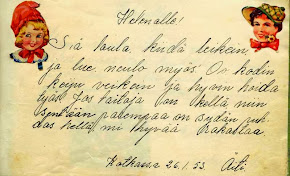 Helenalle!
Siä laula kudo leikein
ja lue, neulo myös Oo kodin
keiju veikein ja hyvin hoida
työs. Jos taitaja oon kellä niin
sentään parempaa on sydän puh
das hellä mi hyvää rakastaa
Kotkassa 26.1.53. Äiti.